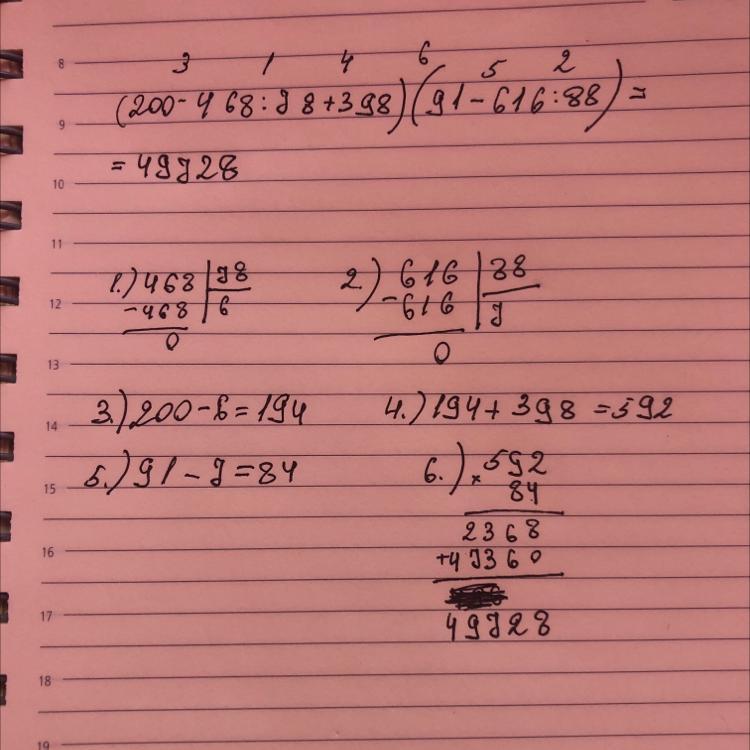 8
3 1 4 6 5 2
9 (200-468:78+398)(91-616:88)=
10 =49728
11
1.) 468 78 2.) 616 88
12 -468 6 -616 7
0 0
13
14 3.) 200-6=194 4.) 194+398=592
15 5.) 91-7=84 6.) x 592
84
2368
16 +47360
17 49728
18
19